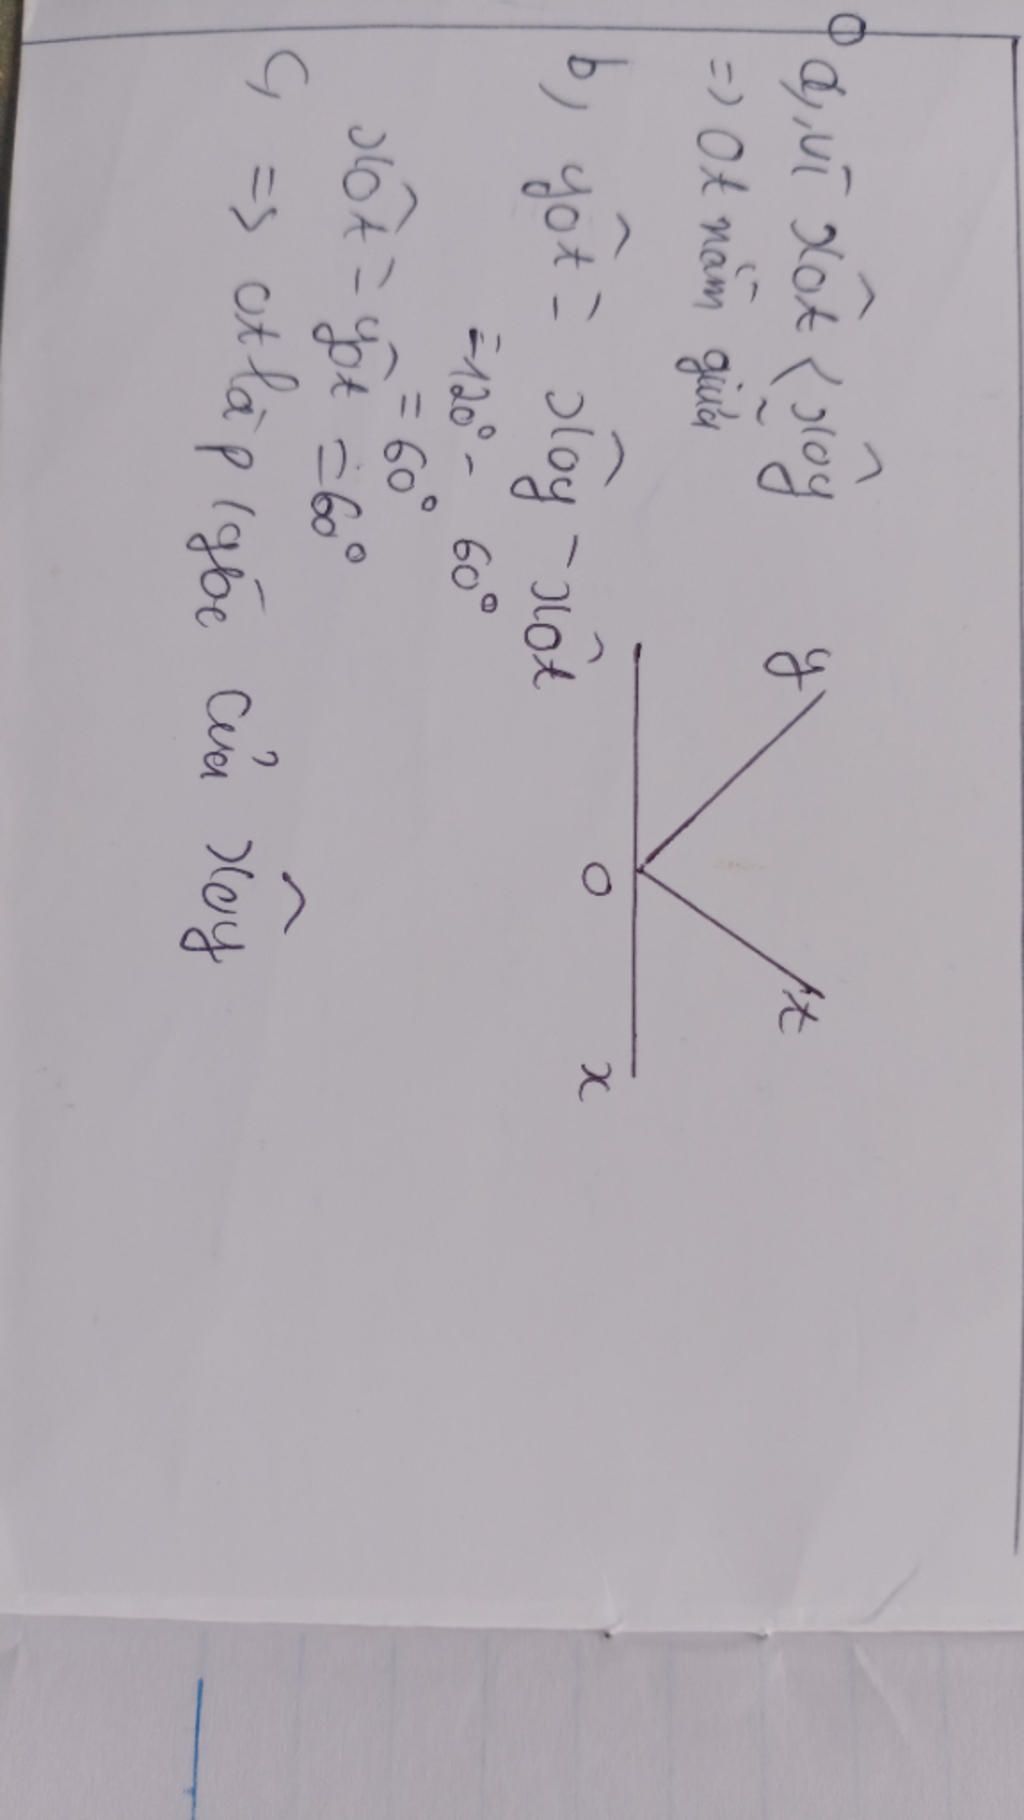 a, vì xôt < xôy
=> Ot nằm giữa
b, yôt = xôy - xôt
= 120° - 60°
= 60°
xôt = yôt = 60°
c, => ot là p/giác của xôy
y
t
O
x